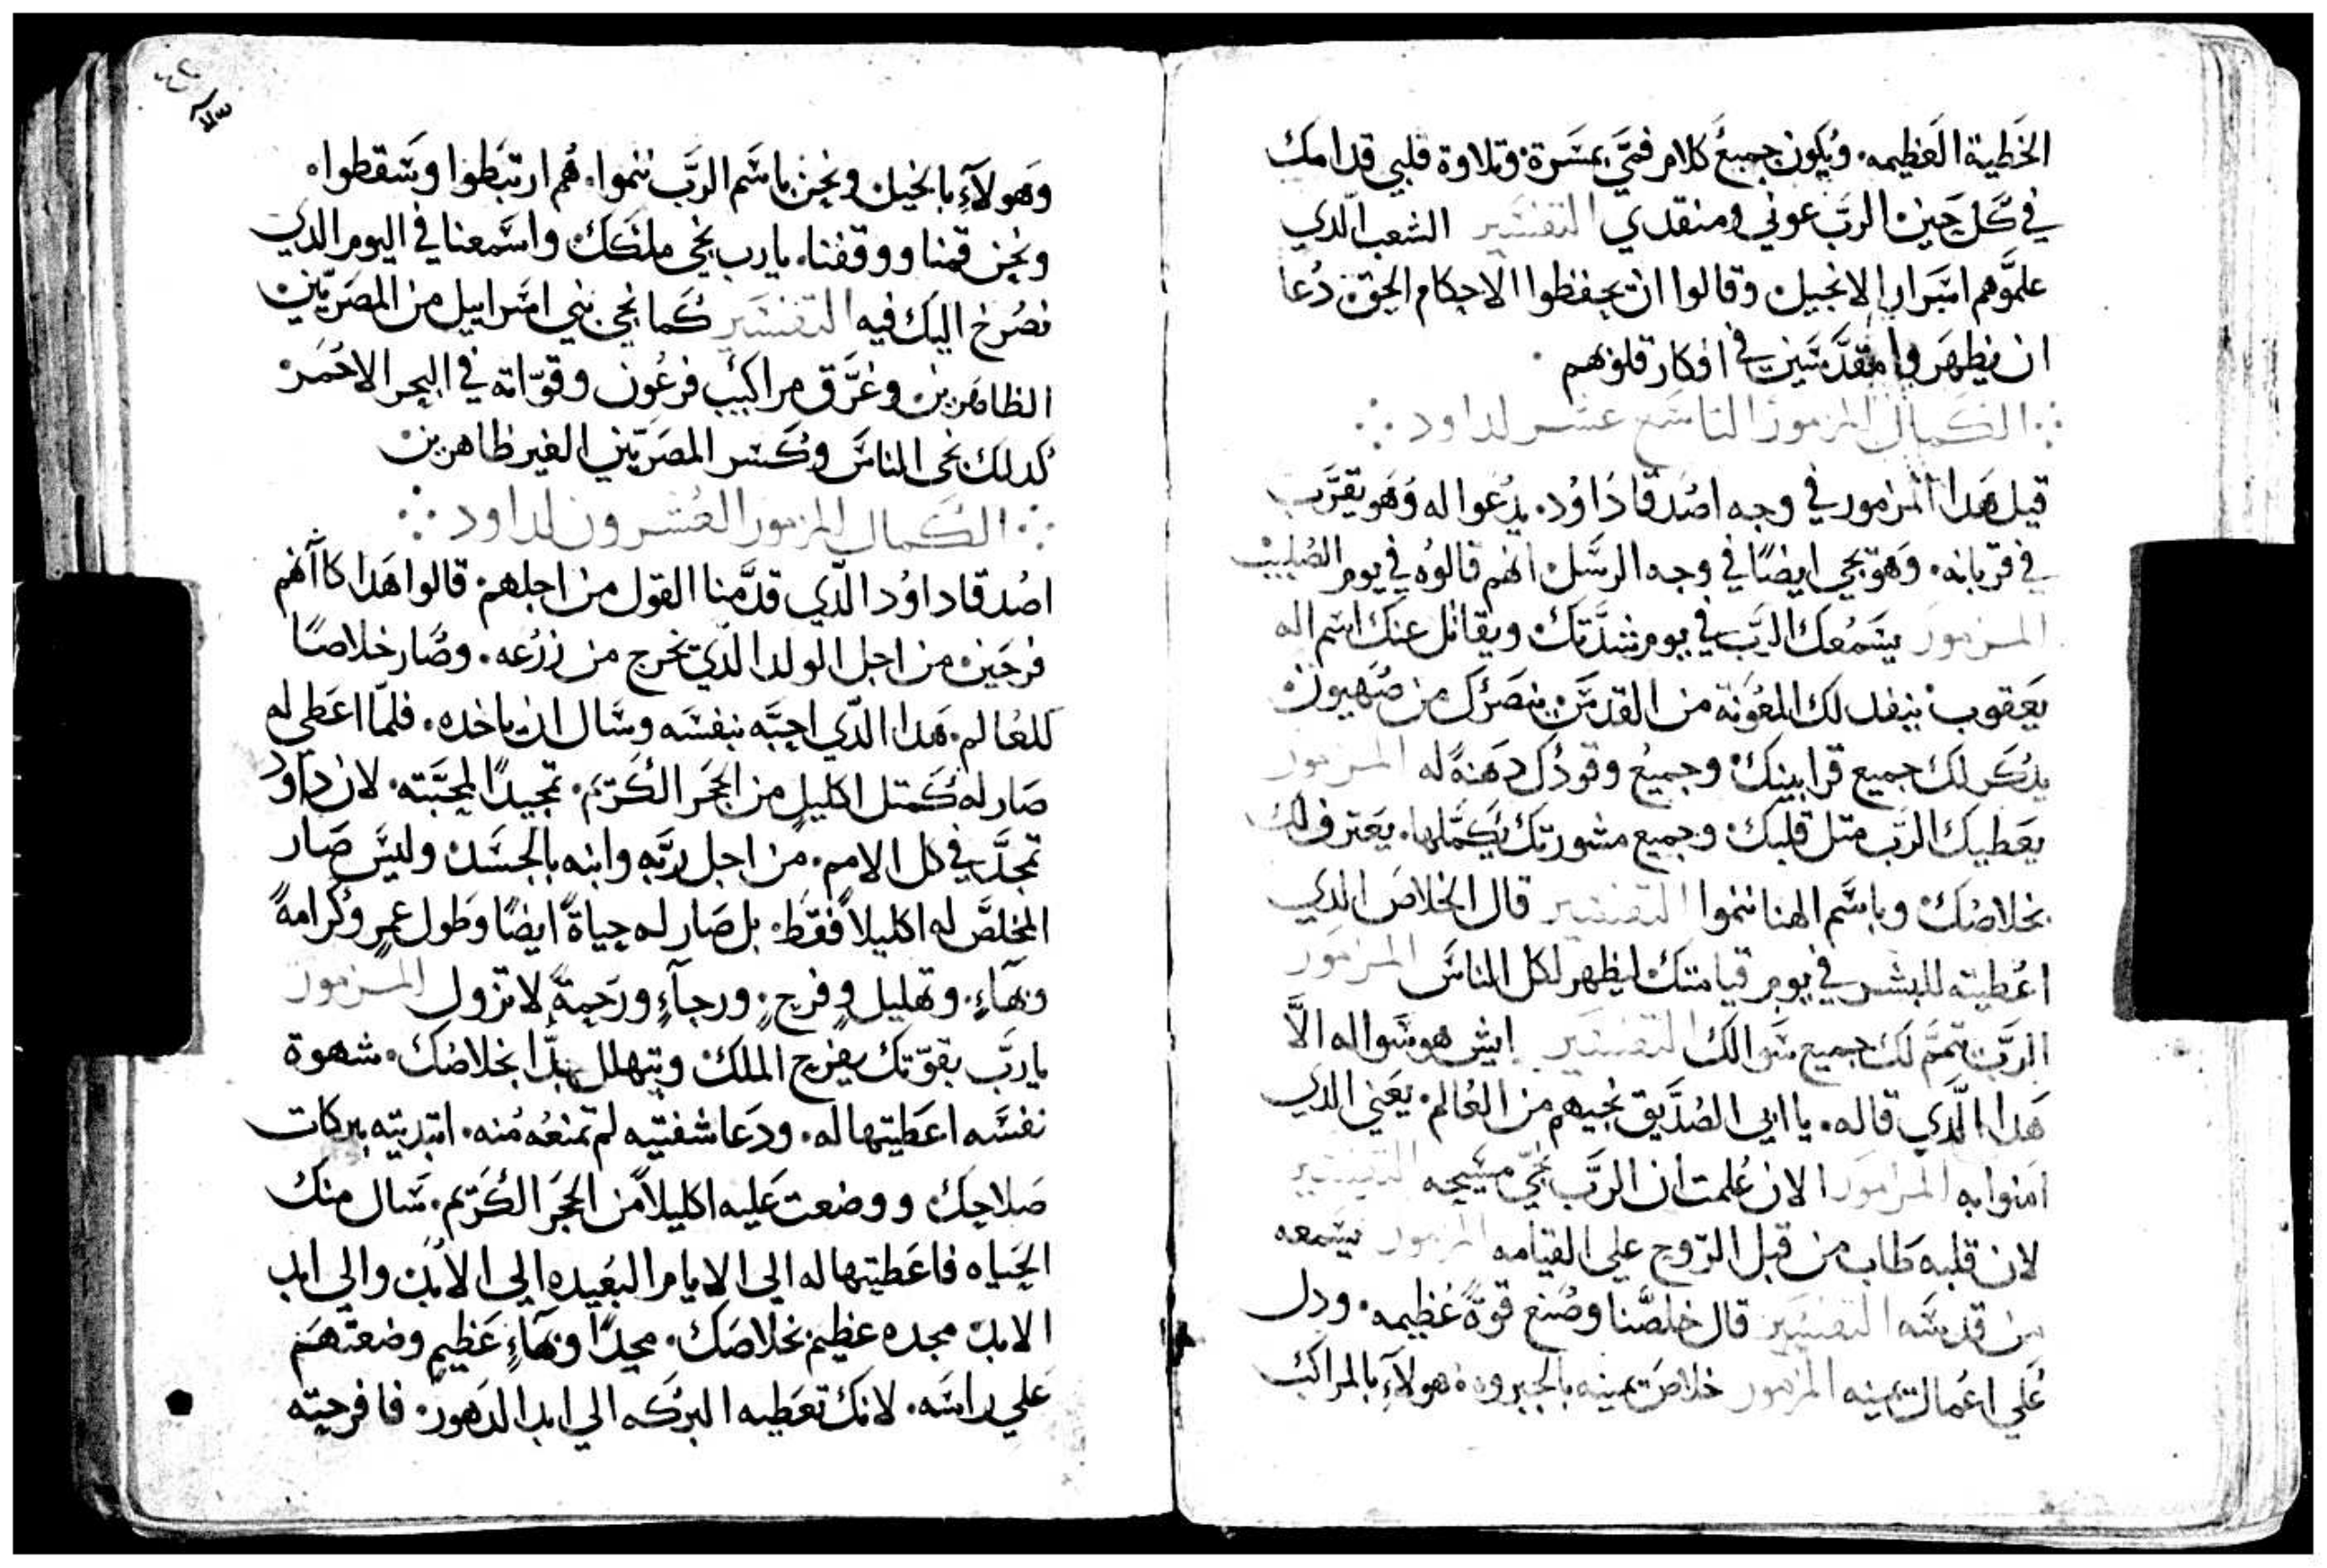 الخطية العظيمه. ويكون جميع كلام فمي بمسرة وتلاوة قلبي قدامك
في كل حين الرب عوني ومنقدي التفسير الشعب الدي
علموهم اسرار الانجيل وقالوا ان يحفظوا الاحكام الحق دعا
ان يظهروا مقدسين في افكار قلوبهم
الكمال المزمور التاسع عشر لداود
قيل هدا المزمور في وجه اصدقا داود. يدعوا له وهو يقرب
في قربانه. وهو يجي ايضًا في وجه الرسل انهم قالوه في يوم الصليب
المزمور يسمعك الرب في يوم شدتك ويقاتل عنك اسم اله
يعقوب ينفد لك المعونة من القدس ينصرك من صهيون
يدكر لك جميع قرابينك وجميع وقودك دهنة له المزمور
يعطيك الرب متل قلبك وجميع مشورتك يكملها. يعترف لك
بخلاصك وباسم الهنا ننموا التفسير قال الخلاص الدي
اعطيته للبشر في يوم قيامتك ليظهر لكل الناس المزمور
الرب يتمم لك جميع سوالك التفسير ايش هو سواله الا
هدا الدي قاله. يا ابي الصديق نجيهم من العالم. يعني الدي
امنوا به المزمور الان علمت ان الرب نجي مسيحه التفسير
لان قلبه طاب من قبل الروح علي القيامه المزمور يسمعه
من قدسه التفسير قال خلصنا وصنع قوة عظيمه. ودل
علي اعمال يمينه المزمور خلاص يمينه بالجبروة هولآء بالمراكب
وهولآء بالخيل ونحن باسم الرب ننموا. هم ارتبطوا وسقطوا.
ونحن قمنا ووقفنا. يا رب نجي ملكك واسمعنا في اليوم الدي
نصرخ اليك فيه التفسير كما نجي بني اسرايل من المصريين
الظاهرين وغرق مراكب فرعون وقواته في البحر الاحمر
كدلك نجي الناس وكسر المصريين الغير ظاهرين
الكمال المزمور العشرون لداود
اصدقا داود الدي قدمنا القول من اجلهم قالوا هدا كانهم
فرحين من اجل الولد الدي يخرج من زرعه. وصار خلاصًا
للعالم. هدا الدي احبه بنفسه وسال ان ياخده. فلما اعطي له
صار له كمتل اكليل من الحجر الكريم. تمجيدًا لمحبته. لان داود
تمجد في كل الامم. من اجل ربه وابنه بالجسد وليس صار
المخلص له اكليلاً فقط. بل صار له حياةً ايضًا وطول عمرٍ وكرامةً
وبهآءٍ. وتهليل وفرحٍ. ورجآءٍ ورحمةً لا تزول المزمور
يا رب بقوتك يفرح الملك ويتهلل جدًا بخلاصك. شهوة
نفسه اعطيتها له. ودعا شفتيه لم تمنعه منه. ابتديته ببركات
صلاحك ووضعت عليه اكليلاً من الحجر الكريم. سال منك
الحياه فاعطيتها له الي الايام البعيده الي الابد والي ابد
الابد مجده عظيم بخلاصك. مجدًا وبهآءٍ عظيم وضعتهم
علي راسه. لانك تعطيه البركه الي ابد الدهور. فافرحته